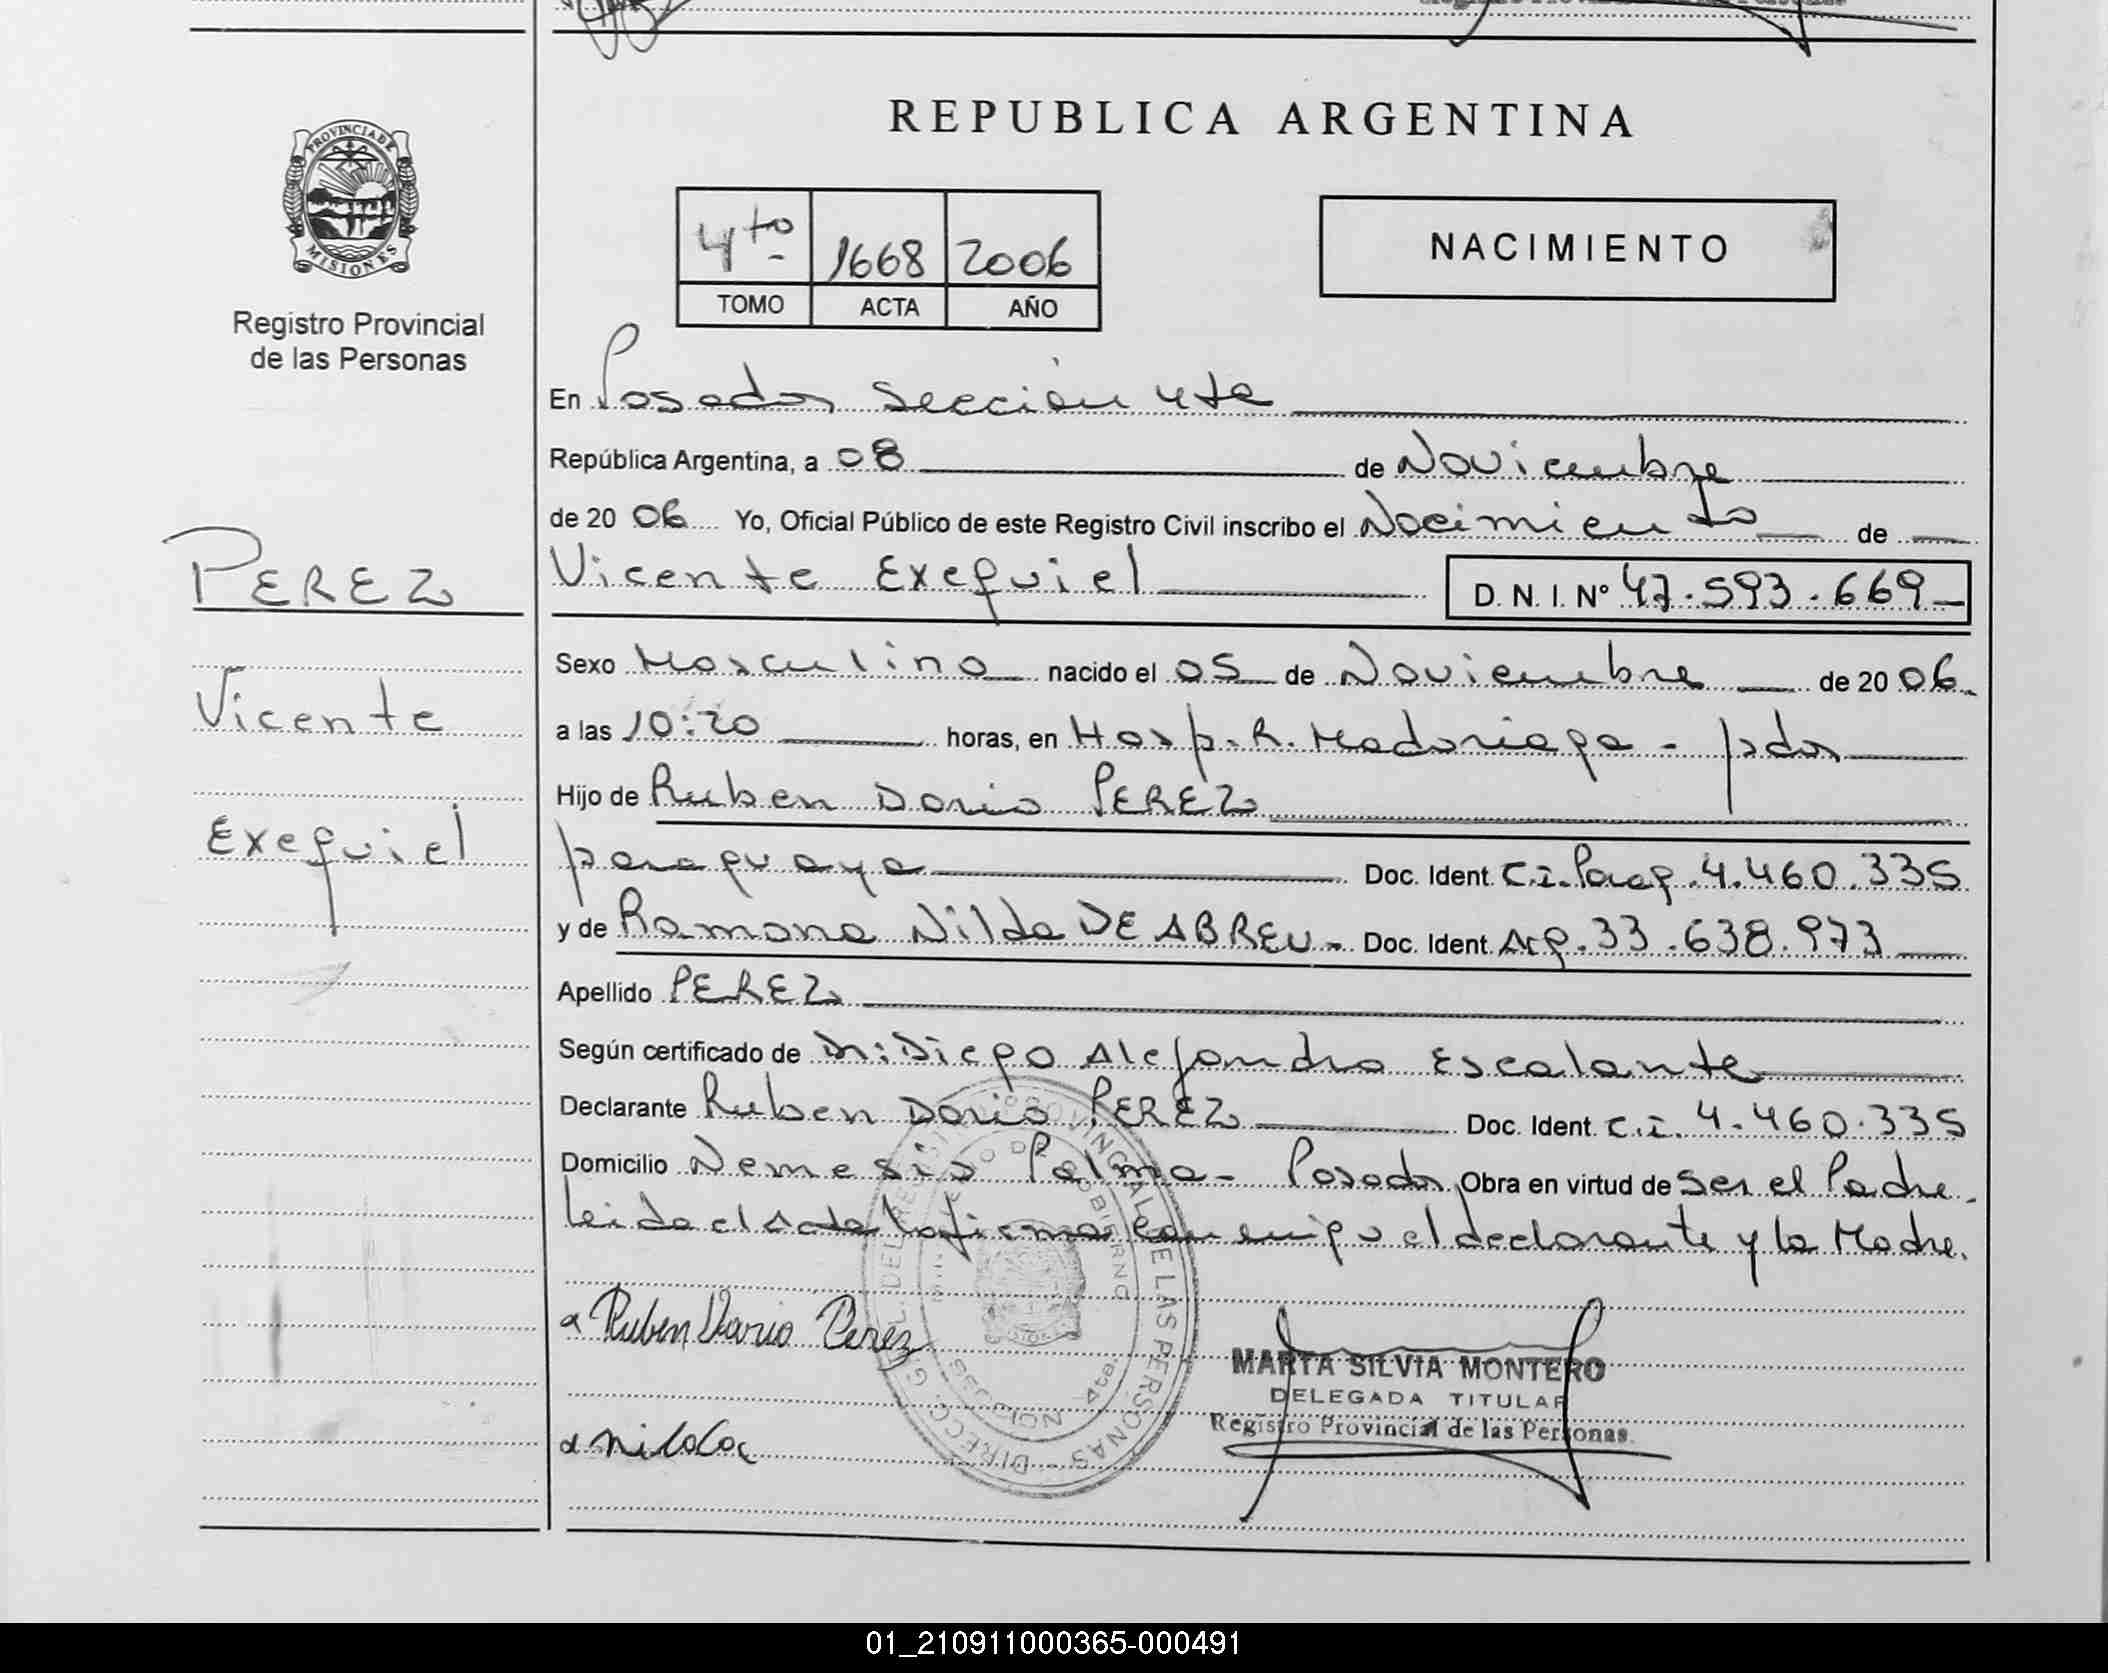 REPUBLICA ARGENTINA
PROVINCIA DE
MISIONES
Registro Provincial
de las Personas
4to 1668 2006
TOMO ACTA AÑO
NACIMIENTO
En Posadas sección 4ta
República Argentina, a 08 de Noviembre
de 20 06 Yo, Oficial Público de este Registro Civil inscribo el Nacimiento de
Vicente Exequiel D. N. I. Nº 47.593.669
PEREZ
Vicente
Exequiel
Sexo Masculino nacido el 05 de Noviembre de 20 06
a las 10:20 horas, en Hosp. R. Madariaga - pdas
Hijo de Ruben Dario PEREZ
paraguaya Doc. Ident. C.I. Parag. 4.460.335
y de Ramona Nilda DE ABREU - Doc. Ident. Arg. 33.638.973
Apellido PEREZ
Según certificado de Dr: Diego Alejandro Escalante
Declarante Ruben Dario PEREZ Doc. Ident. C.I. 4.460.335
Domicilio Nemesio Palma - Posadas Obra en virtud de ser el Padre.
Leida el Acta la firma conmigo el declarante y la Madre.
Ruben Dario Perez
DIRECC. GRAL. DEL REGISTRO PROVINCIAL DE LAS PERSONAS
DE GOBIERNO
SECCION 4ta
MARTA SILVIA MONTERO
DELEGADA TITULAR
Registro Provincial de las Personas.
01_210911000365-000491